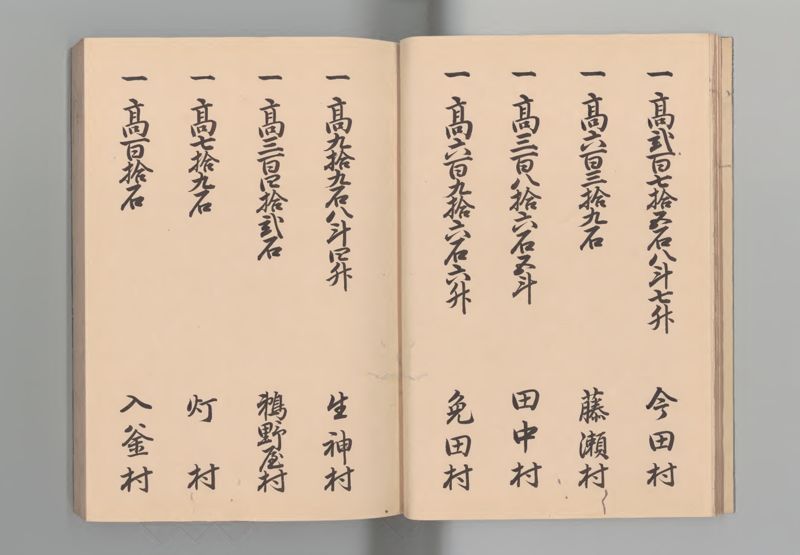 一 高弐百七拾五石八斗七升 今田村
一 高六百三拾九石 藤瀬村
一 高三百八拾六石五斗 田中村
一 高六百九拾六石六升 免田村
一 高九拾九石八斗四升 生神村
一 高三百四拾弐石 鵜野屋村
一 高七拾九石 灯村
一 高百拾石 入釜村